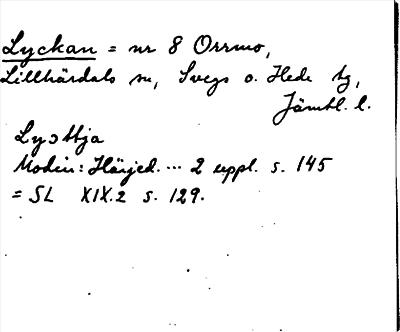 Lyckan = nr 8 Orrmo,
Lillhärdals sn, Svegs o. Hede tg,
Jämtl. l.
Modin: Härjed. ... 2 uppl. s. 145
= SL XIX.2 s. 129.